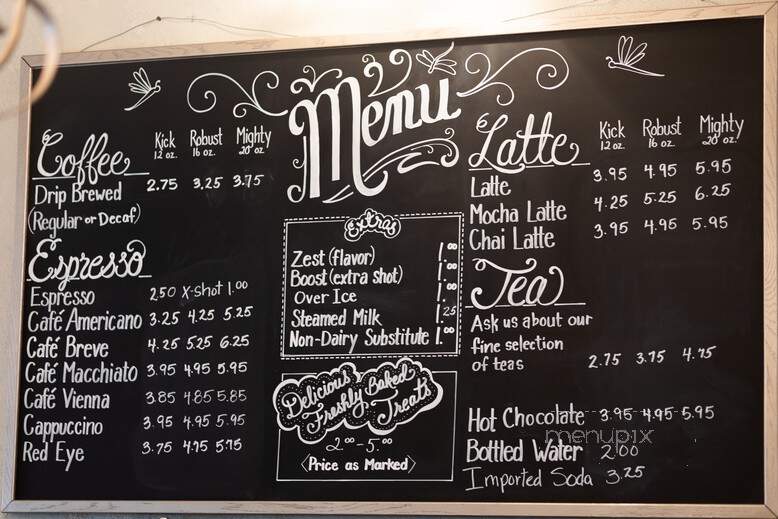 Menu
Coffee Kick 12 oz. Robust 16 oz. Mighty 20 oz.
Drip Brewed 2.75 3.25 3.75
(Regular or Decaf)
Espresso
Espresso 2.50 X-shot 1.00
Café Americano 3.25 4.25 5.25
Café Breve 4.25 5.25 6.25
Café Macchiato 3.95 4.95 5.95
Café Vienna 3.85 4.85 5.85
Cappuccino 3.95 4.95 5.95
Red Eye 3.75 4.75 5.75
Extras
Zest (flavor) 1.00
Boost (extra shot) 1.00
Over Ice
Steamed Milk 1.25
Non-Dairy Substitute 1.00
Delicious
Freshly Baked
Treats
2.00-5.00
Price as Marked
Latte Kick 12 oz. Robust 16 oz. Mighty 20 oz.
Latte 3.95 4.95 5.95
Mocha Latte 4.25 5.25 6.25
Chai Latte 3.95 4.95 5.95
Tea
Ask us about our
fine selection
of teas 2.75 3.75 4.75
Hot Chocolate 3.95 4.95 5.95
menupix
Bottled Water 2.00
Imported Soda 3.25